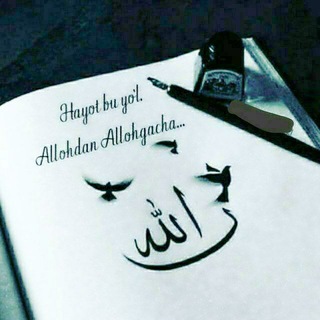 Hayot bu yo'l.
Allohdan Allohgacha...
الله